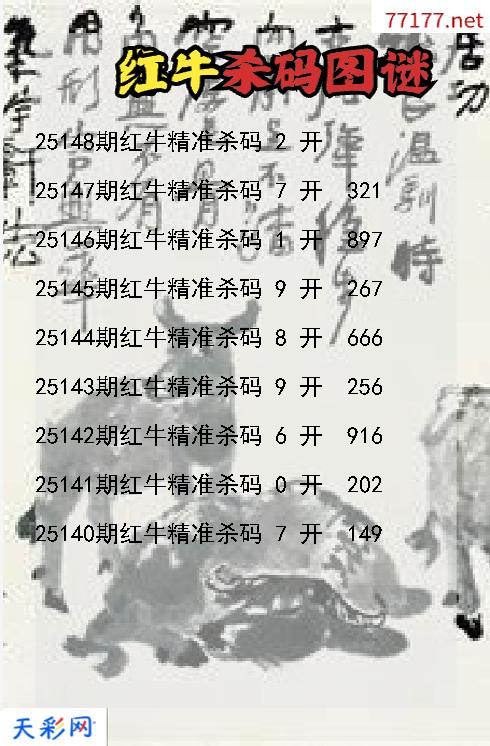 77177.net
红牛杀码图谜
25148期红牛精准杀码 2 开
25147期红牛精准杀码 7 开 321
25146期红牛精准杀码 1 开 897
25145期红牛精准杀码 9 开 267
25144期红牛精准杀码 8 开 666
25143期红牛精准杀码 9 开 256
25142期红牛精准杀码 6 开 916
25141期红牛精准杀码 0 开 202
25140期红牛精准杀码 7 开 149
天彩网